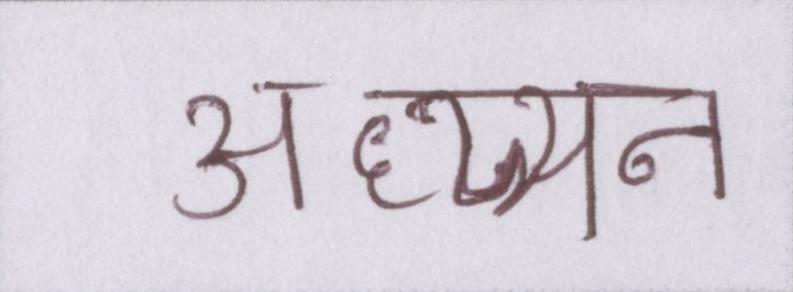 अध्ययन